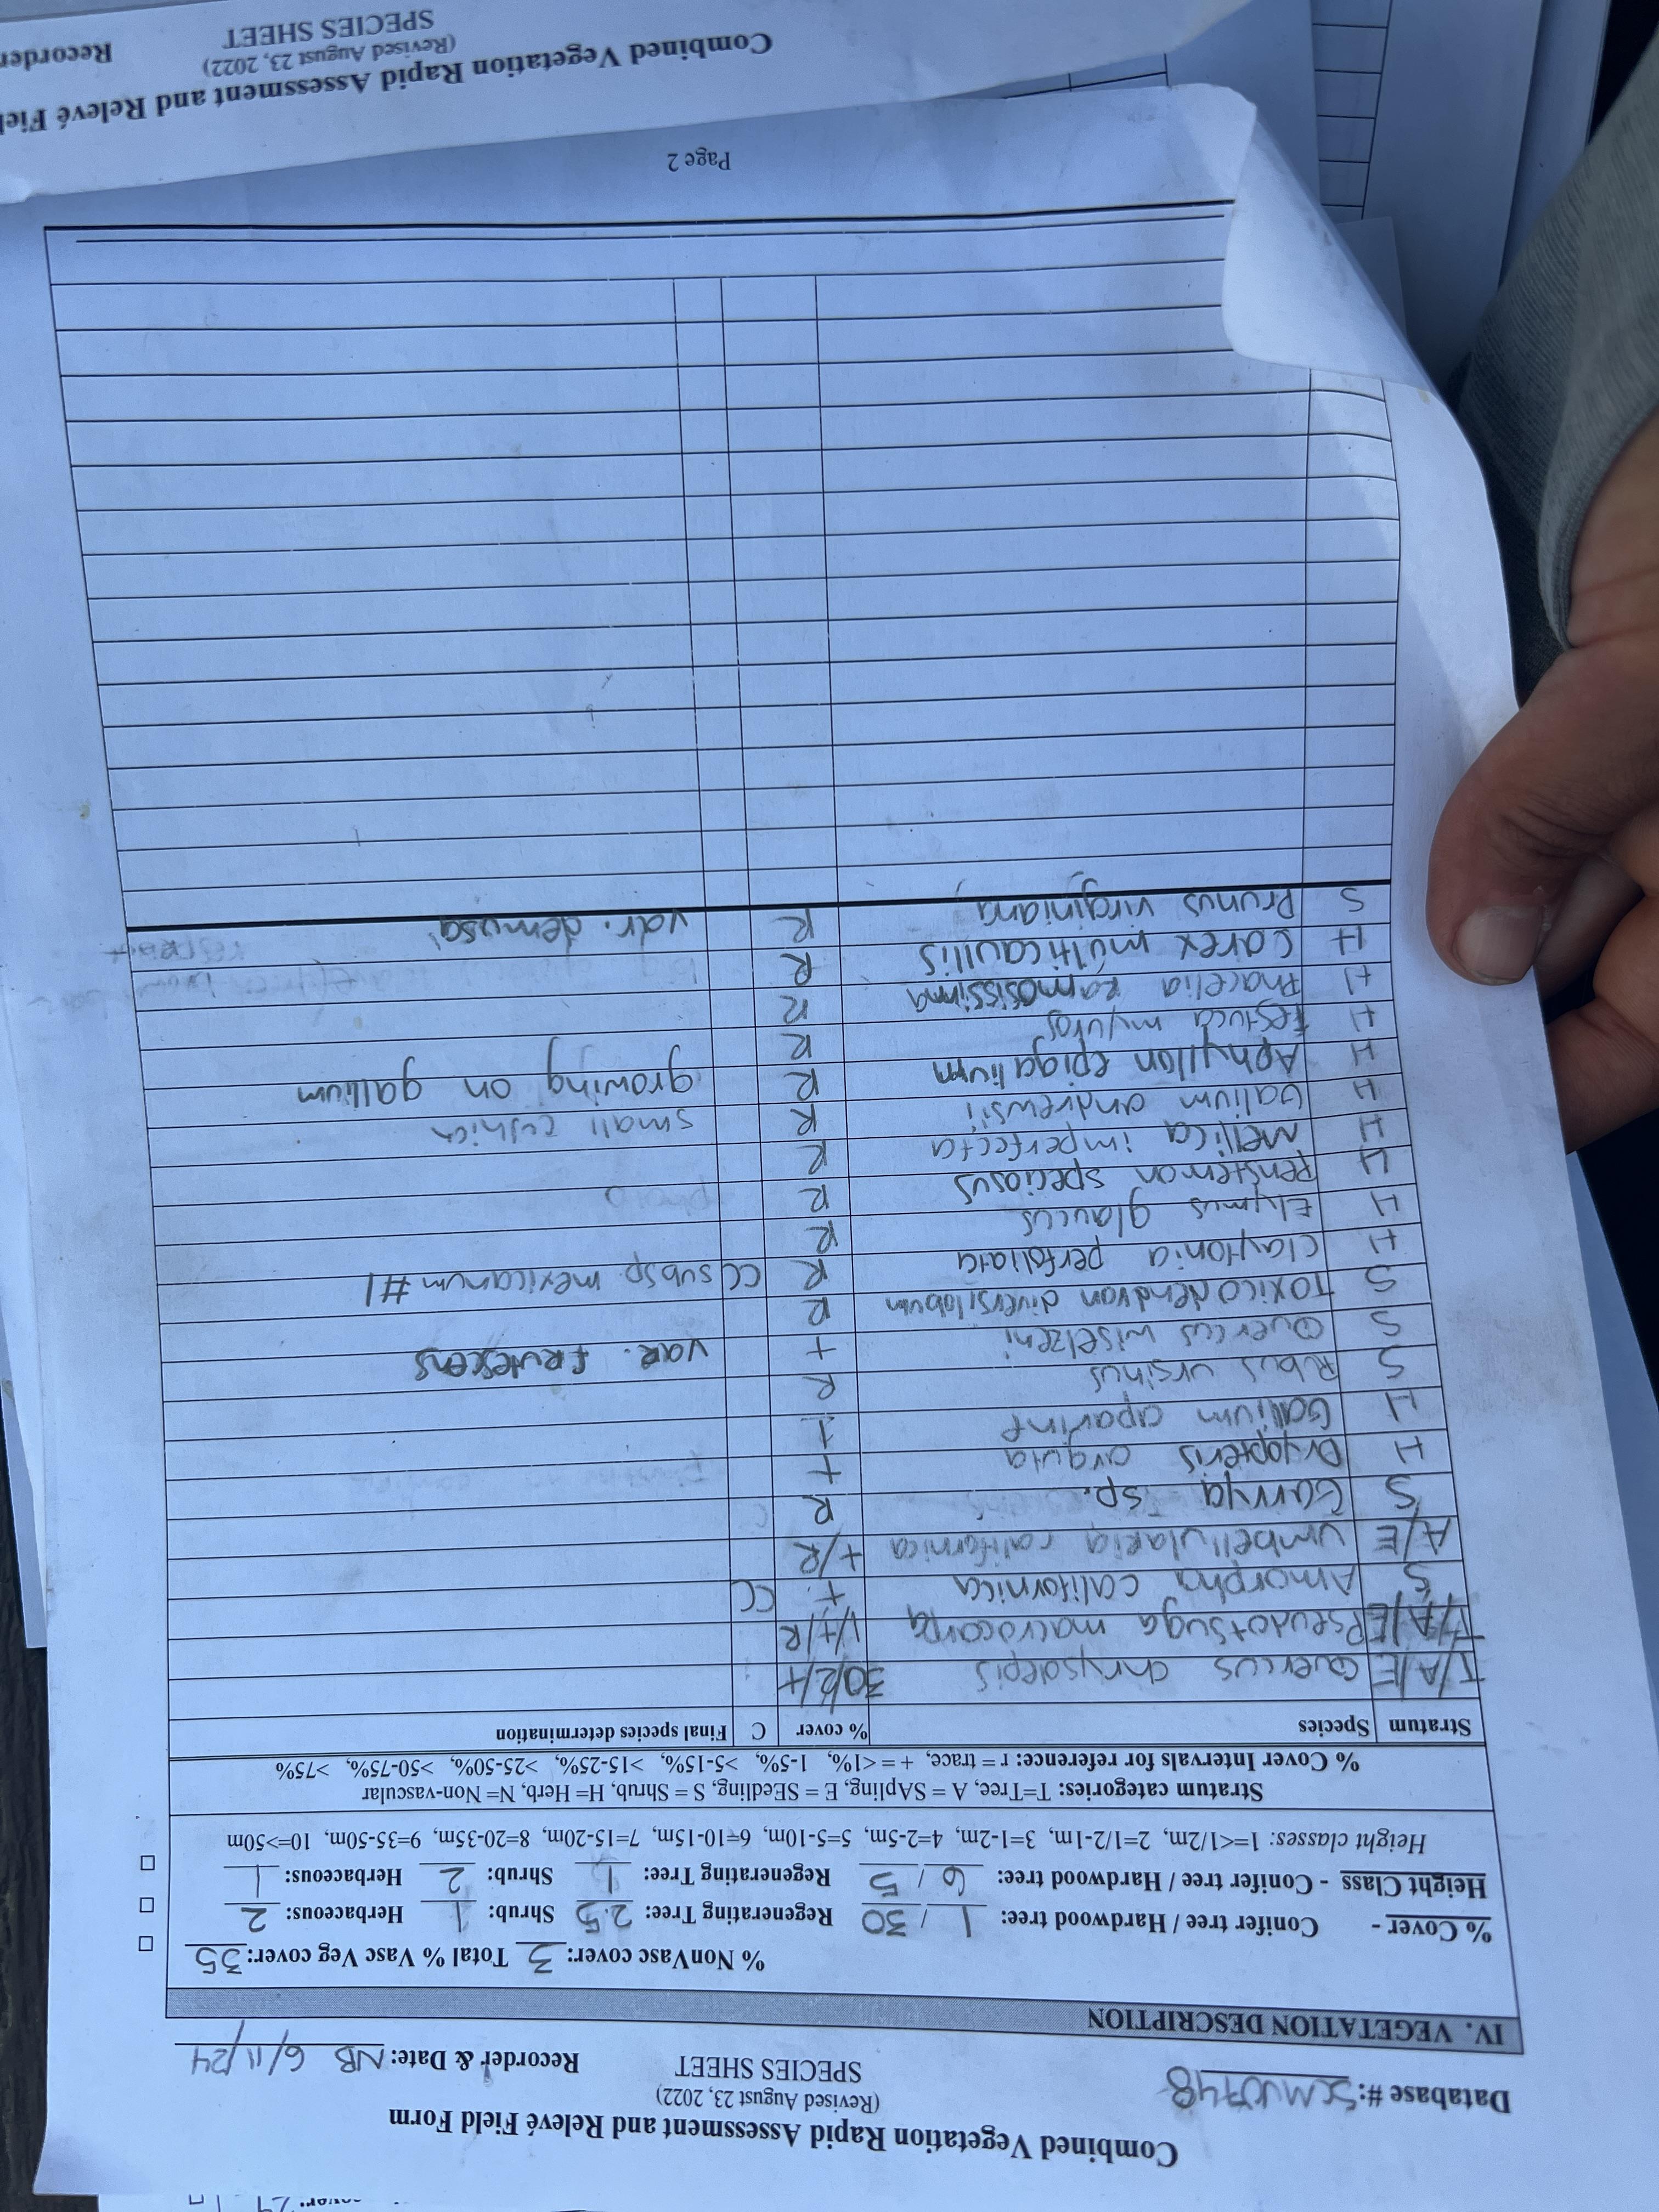 Combined Vegetation Rapid Assessment and Relevé Field Form
(Revised August 23, 2022)
SPECIES SHEET
Database #: SCMV0748
Recorder & Date: NB 6/11/24
IV. VEGETATION DESCRIPTION
% NonVasc cover: 3 Total % Vasc Veg cover: 35
% Cover - Conifer tree / Hardwood tree: 1 / 30 Regenerating Tree: 2.5 Shrub: 1 Herbaceous: 2
Height Class - Conifer tree / Hardwood tree: 6 / 5 Regenerating Tree: 1 Shrub: 2 Herbaceous: 1
Height classes: 1=<1/2m, 2=1/2-1m, 3=1-2m, 4=2-5m, 5=5-10m, 6=10-15m, 7=15-20m, 8=20-35m, 9=35-50m, 10=>50m
Stratum categories: T=Tree, A = SApling, E = SEedling, S = Shrub, H= Herb, N= Non-vascular
% Cover Intervals for reference: r = trace, + = <1%, 1-5%, >5-15%, >15-25%, >25-50%, >50-75%, >75%
Stratum Species % cover C Final species determination
T/A/E Quercus chrysolepis 30/2/+
T/A/E Pseudotsuga macrocarpa 1/+/R
S Amorpha californica + CC
A/E Umbellularia californica +/R
S Garrya sp. R C
H Dryopteris arguta +
H Galium aparine 1
S Rubus ursinus R
S Quercus wislizeni + var. frutescens
S Toxicodendron diversilobum R
H Claytonia perfoliata R CC subsp mexicanum #1
H Elymus glaucus R
H Penstemon speciosus R
H Melica imperfecta R
H Galium andrewsii R small cushion
H Aphyllon epigalium R growing on gallium
H Festuca myuros R
H Phacelia ramosissima R
H Carex multicaulis R
S Prunus virginiana R var. demissa
Page 2
Combined Vegetation Rapid Assessment and Relevé Fiel
(Revised August 23, 2022)
SPECIES SHEET
Recorder